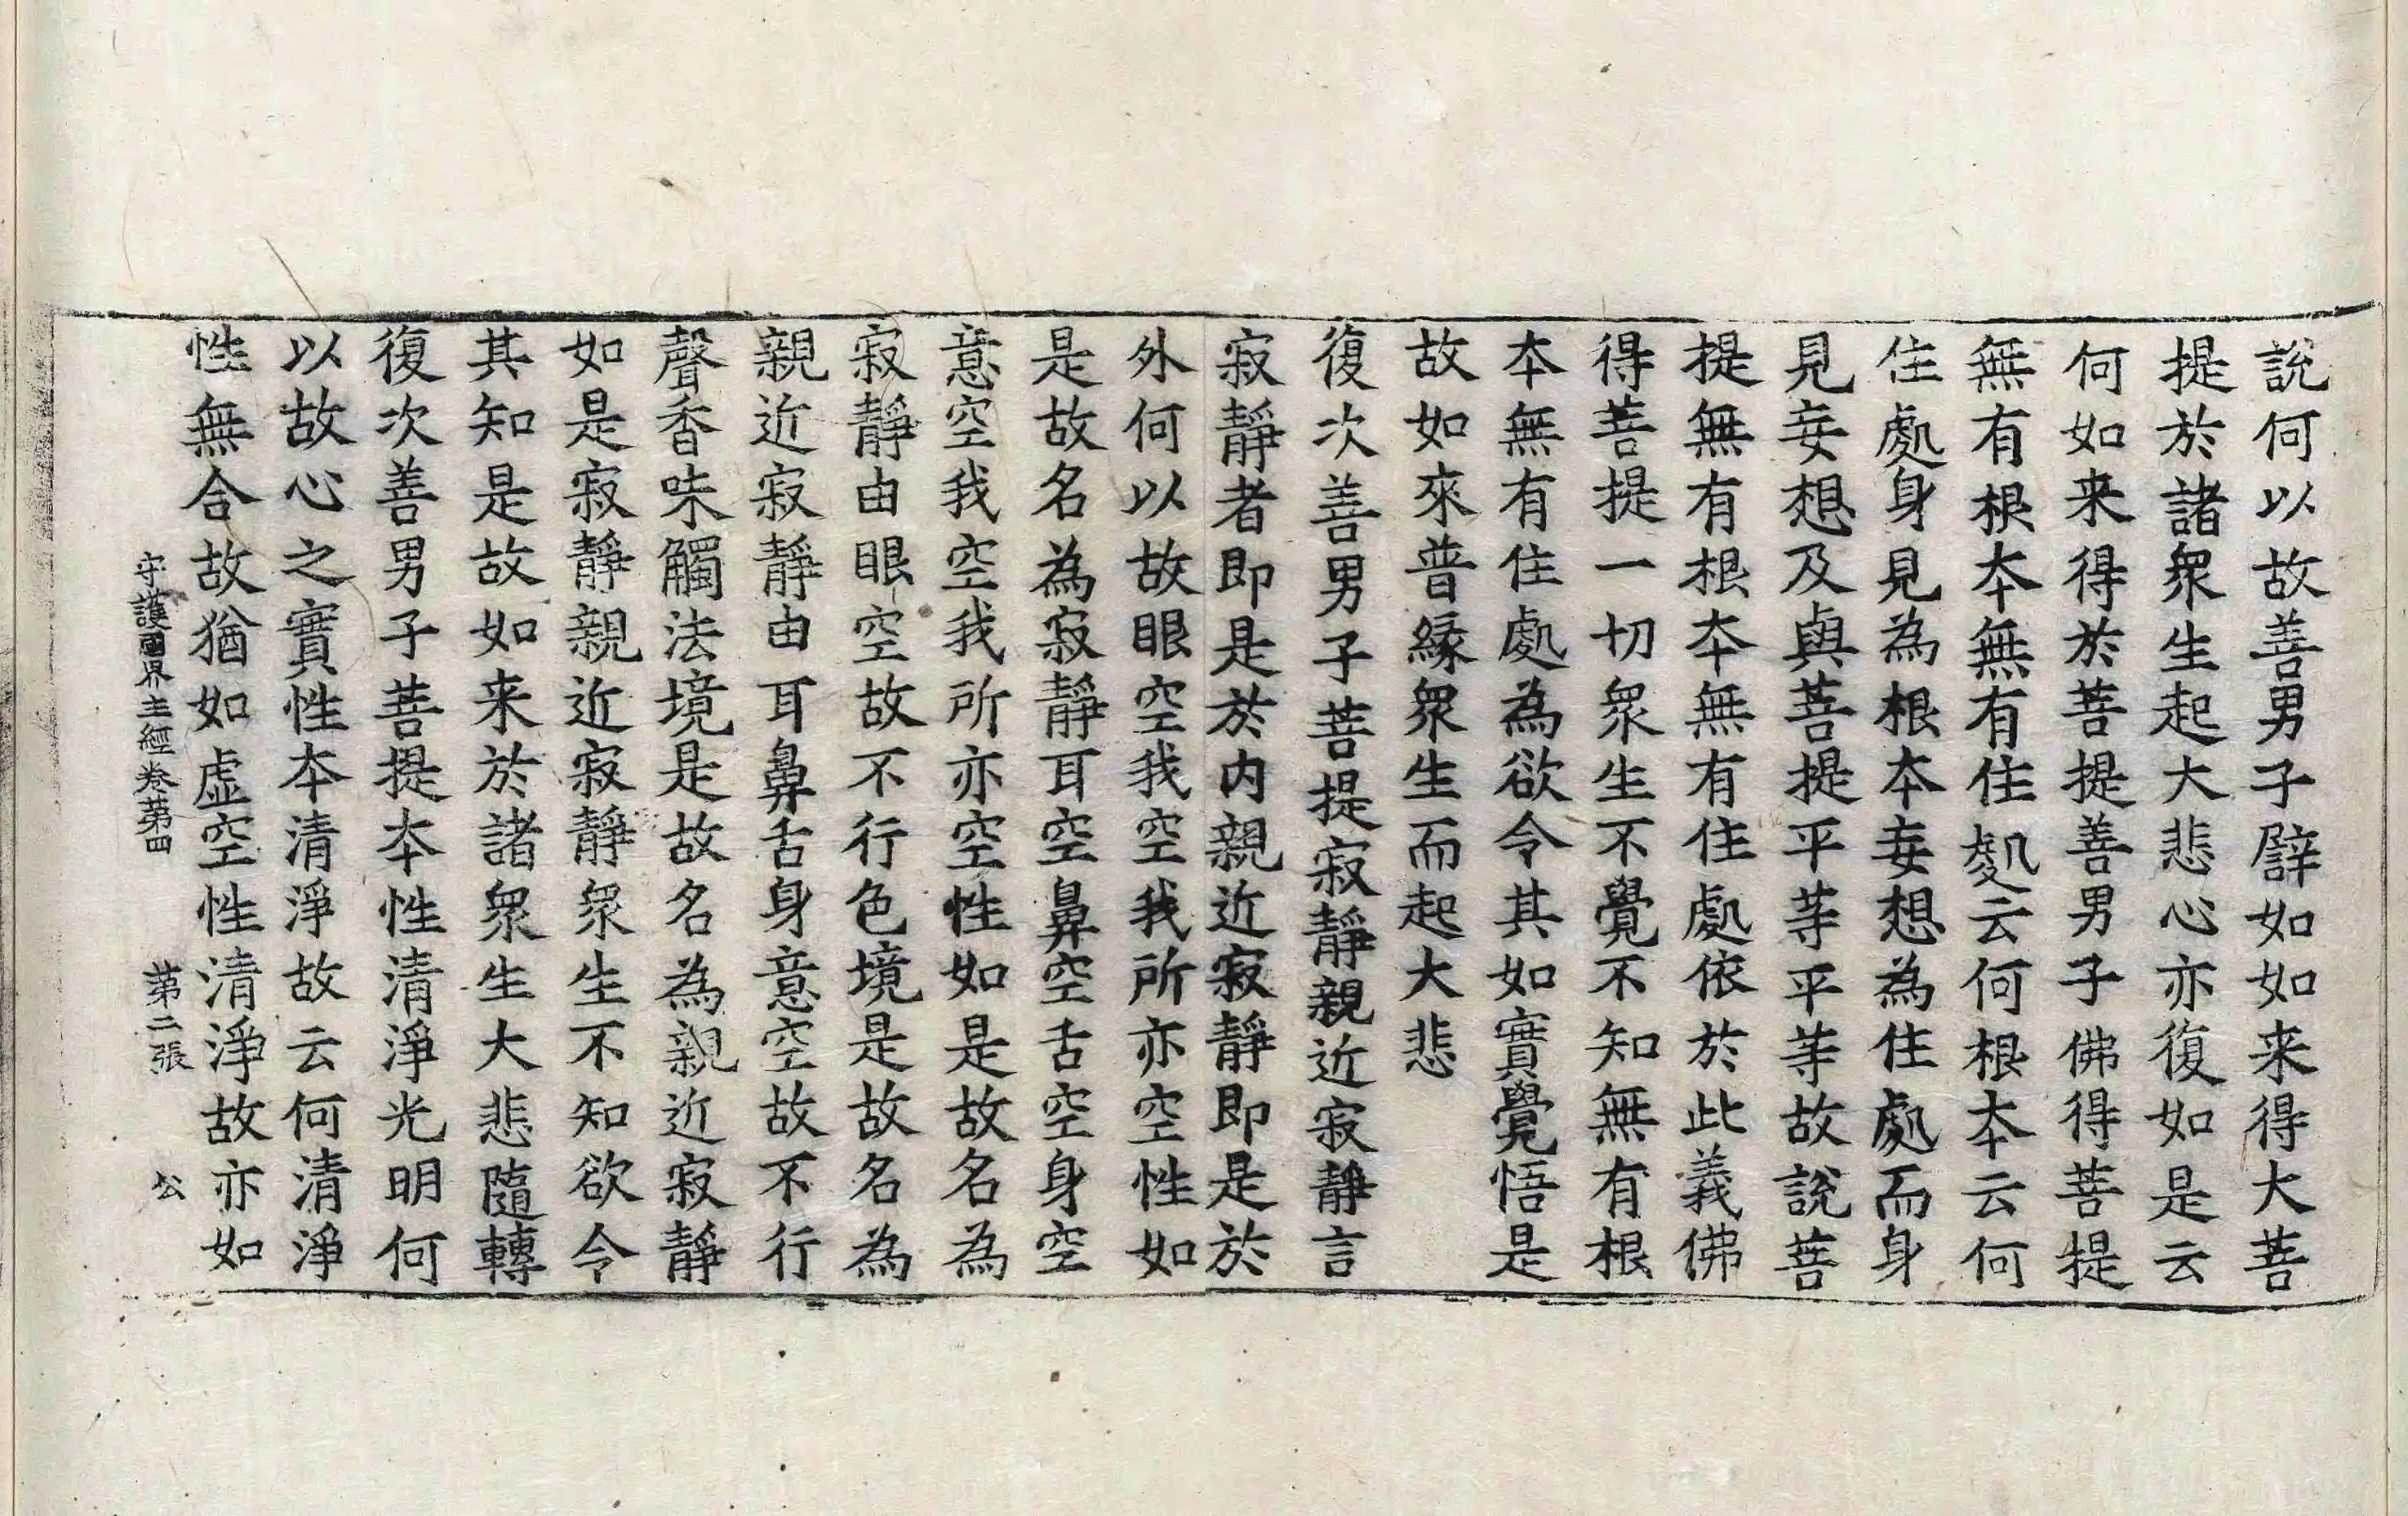 說何以故善男子譬如如来得大菩
提於諸衆生起大悲心亦復如是云
何如来得於菩提善男子佛得菩提
無有根本無有住處云何根本云何
住處身見為根本妄想為住處而身
見妄想及與菩提平等平等故說菩
提無有根本無有住處依於此義佛
得菩提一切衆生不覺不知無有根
本無有住處為欲令其如實覺悟是
故如來普緣衆生而起大悲
復次善男子菩提寂靜親近寂靜言
寂靜者即是於内親近寂靜即是於
外何以故眼空我空我所亦空性如
是故名為寂靜耳空鼻空舌空身空
意空我空我所亦空性如是故名為
寂靜由眼空故不行色境是故名為
親近寂靜由耳鼻舌身意空故不行
聲香味觸法境是故名為親近寂靜
如是寂靜親近寂靜衆生不知欲令
其知是故如来於諸衆生大悲隨轉
復次善男子菩提本性清淨光明何
以故心之實性本清淨故云何清淨
性無合故猶如虛空性清淨故亦如
守護國界主經卷第四 第二張 公